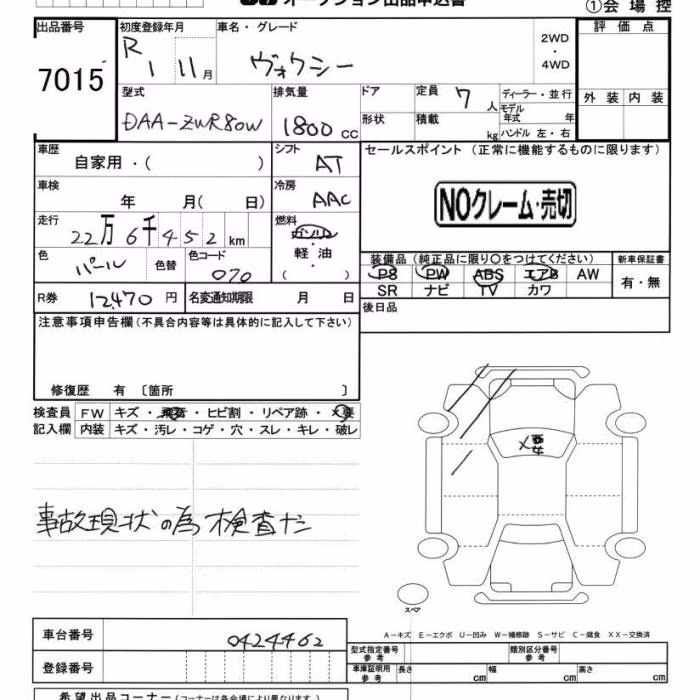 オークション出品申込書
①会場控
出品番号 7015
初度登録年月 R1 11月
車名・グレード ヴォクシー
2WD・4WD
評価点
外装 内装
型式 DAA-ZWR80W
排気量 1800cc
ドア
形状
定員 7人
積載 kg
ディーラー・並行
モデル年式 年
ハンドル 左・右
車歴 自家用・( )
シフト AT
セールスポイント(正常に機能するものに限ります)
NOクレーム・売切
車検 年 月( 日)
冷房 AAC
走行 22万6千452km
燃料 ガソリン・軽油・( )
色 パール 色替 色コード 070
装備品(純正品に限り○をつけてください)
新車保証書
PS PW ABS エアB AW
有・無
SR ナビ TV カワ
R券 12,470円 名変通知期限 月 日
後日品
注意事項申告欄(不具合内容等は具体的に記入して下さい)
修復歴 有〔箇所 〕
検査員記入欄
FW キズ・飛石・ヒビ割・リペア跡・×要
内装 キズ・汚レ・コゲ・穴・スレ・キレ・破レ
×要
事故現状の為検査ナシ
スペア
車台番号 0424462
A-キズ E-エクボ U-凹み W-補修跡 S-サビ C-腐食 XX-交換済
型式指定番号 参考
類別区分番号 参考
登録番号
車庫証明用 参考 長さ cm 幅 cm 高さ cm
希望出品コーナー(コーナーは各会場により異なります。)